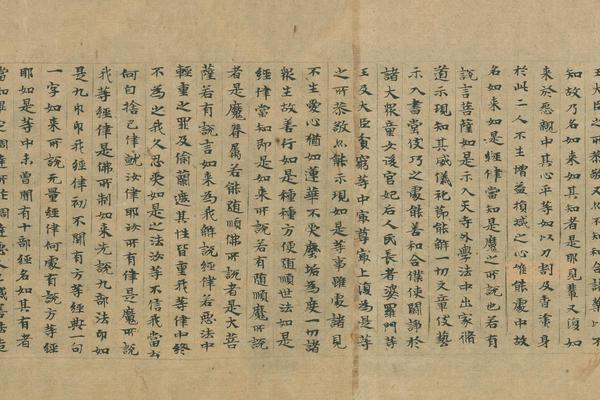 王大臣之所恭敬又亦不知和合諸藥以不
知故乃名如來如其知者是邪見輩又復如
來於怨親中其心平等如以刀割及香塗身
於此二人不生增益損減之心唯能處中故
名如來如是經律當知是魔之所說也若有
說言菩薩如是示入天寺外學法中出家脩
道示現知其威儀礼節能解一切文章伎藝
示入書堂伎巧之處能善和合僮使鬪諍於
諸大衆童女後宮妃后人民長者婆羅門等
王及大臣貧窮等中冣尊冣上復為是等
之所恭敬亦能示現如是等事雖處諸見
不生愛心猶如蓮華不受塵垢為度一切諸
衆生故善行如是種種方便隨順世法如是
經律當知即是如來所說若有隨順魔所說
者是魔眷属若能隨順佛所說者是大菩
薩若有說言如來為我解說經律若惡法中
輕重之罪及偷蘭遮其性皆重我等律中終
不為之我久忍受如是之法汝等不信我當云
何自捨己律就汝律耶汝所有律是魔所說
我等經律是佛所制如來先說九部法印如
是九印印我經律初不聞有方等經典一句
一字如來所說无量經律何處有說方等經
耶如是等中未曾聞有十部經名如其有者
當知畢定調達所作調達惡人以滅善法造